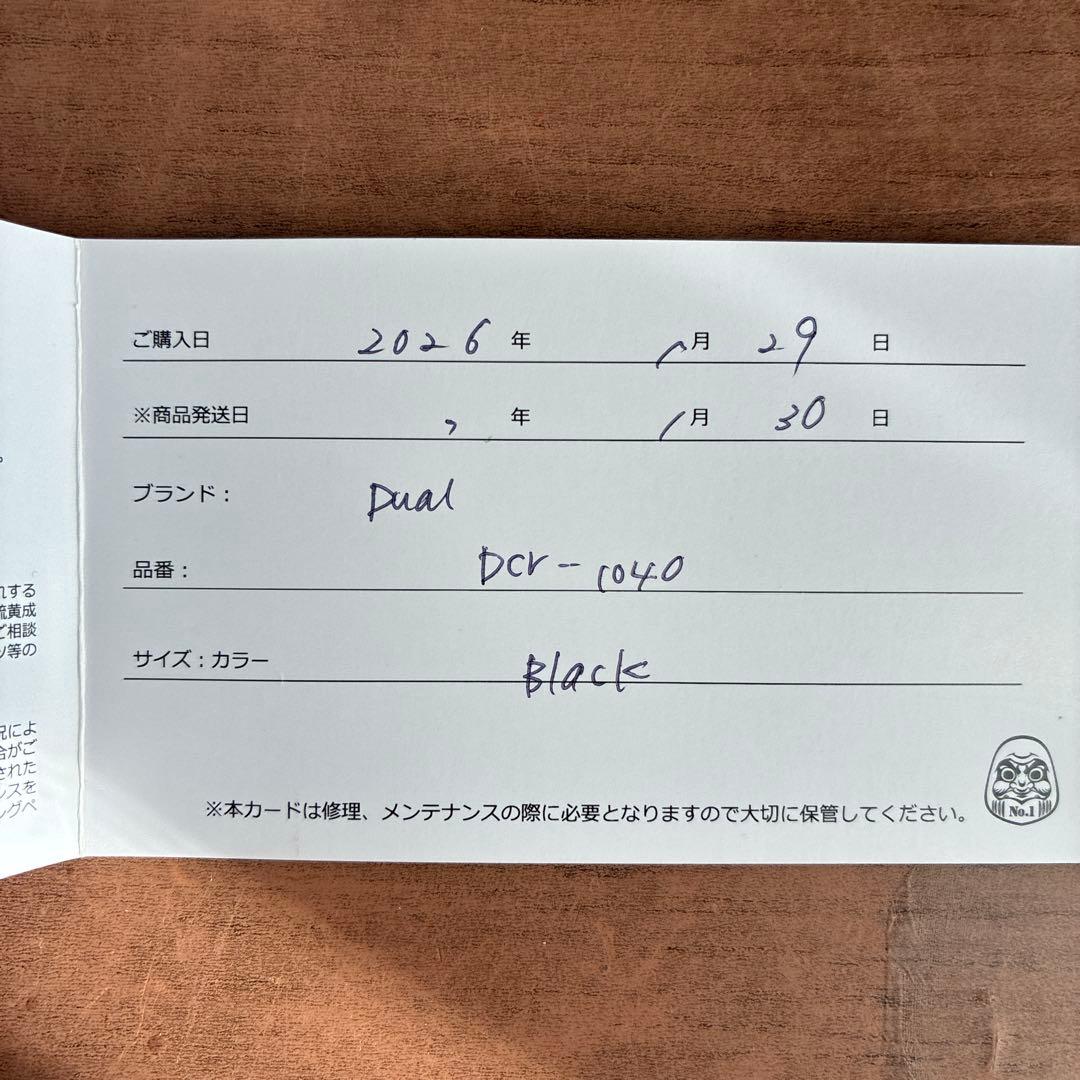 ご購入日 2026 年 1 月 29 日
※商品発送日 〃 年 1 月 30 日
ブランド: Dual
品番: DCr-1040
サイズ:カラー Black
※本カードは修理、メンテナンスの際に必要となりますので大切に保管してください。
No.1
。
れする
硫黄成
ご相談
ツ等の
況によ
合がご
された
レスを
ングペ